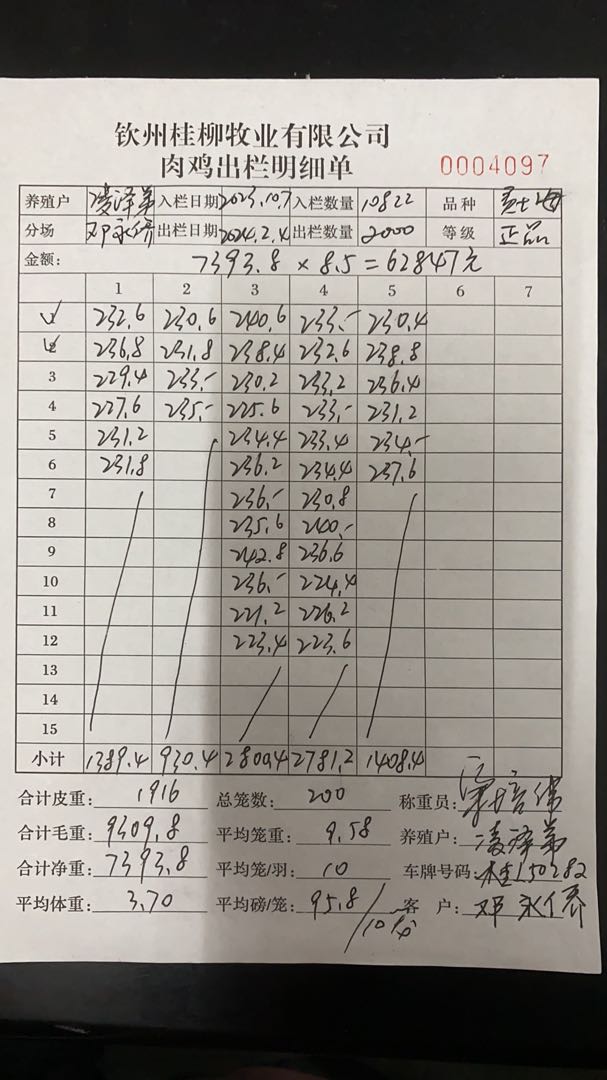 钦州桂柳牧业有限公司
肉鸡出栏明细单 0004097
养殖户 凌泽第 入栏日期 2023.10.7 入栏数量 10822 品种
分场 邓永侨 出栏日期 2024.2.4 出栏数量 2000 等级 正品
金额: 7393.8 × 8.5 = 62847元
1 2 3 4 5 6 7
1 232.6 230.6 240.6 233.- 230.4
2 236.8 231.8 238.4 232.6 238.8
3 229.4 233.- 230.2 233.2 236.4
4 227.6 235.- 225.6 233.- 231.2
5 231.2 234.4 233.4 234.-
6 231.8 236.2 234.4 237.6
7 236.- 230.8
8 235.6 240.-
9 242.8 236.6
10 236.- 224.4
11 221.2 226.2
12 223.4 223.6
13
14
15
小计 1389.4 930.4 2800.4 2781.2 1408.4
合计皮重: 1916 总笼数: 200 称重员:
合计毛重: 9309.8 平均笼重: 9.58 养殖户: 凌泽第
合计净重: 7393.8 平均笼/羽: 10 车牌号码: 桂L50282
平均体重: 3.70 平均磅/笼: 95.8/10 客 户: 邓永侨